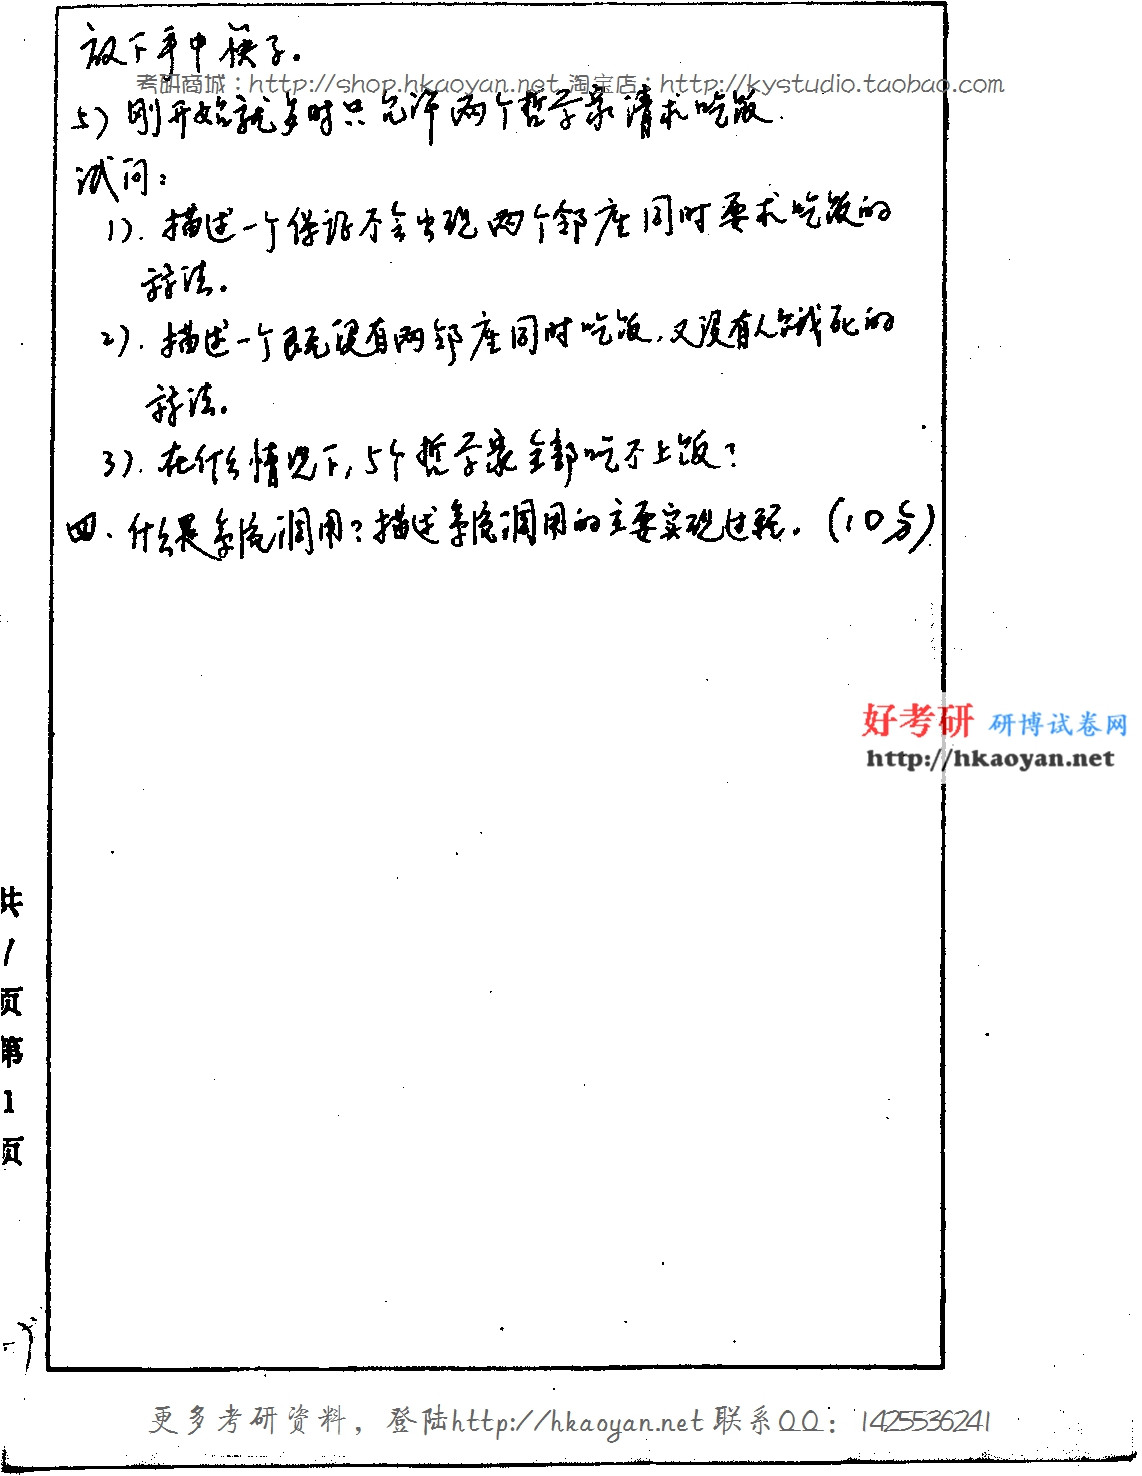 放下手中筷子。
考研商城：http://shop.hkaoyan.net 淘宝店：http://kystudio.taobao.com
5) 刚开始就餐时只允许两个哲学家请求吃饭.
试问：
1). 描述一个保证不会出现两个邻座同时要求吃饭的
算法。
2). 描述一个既没有两邻座同时吃饭，又没有人饿死的
算法。
3). 在什么情况下，5个哲学家全部吃不上饭？
四、什么是系统调用？描述系统调用的主要实现过程。(10分)
好考研 研博试卷网
http://hkaoyan.net
共
1
页
第
1
页
更多考研资料，登陆http://hkaoyan.net 联系QQ：1425536241